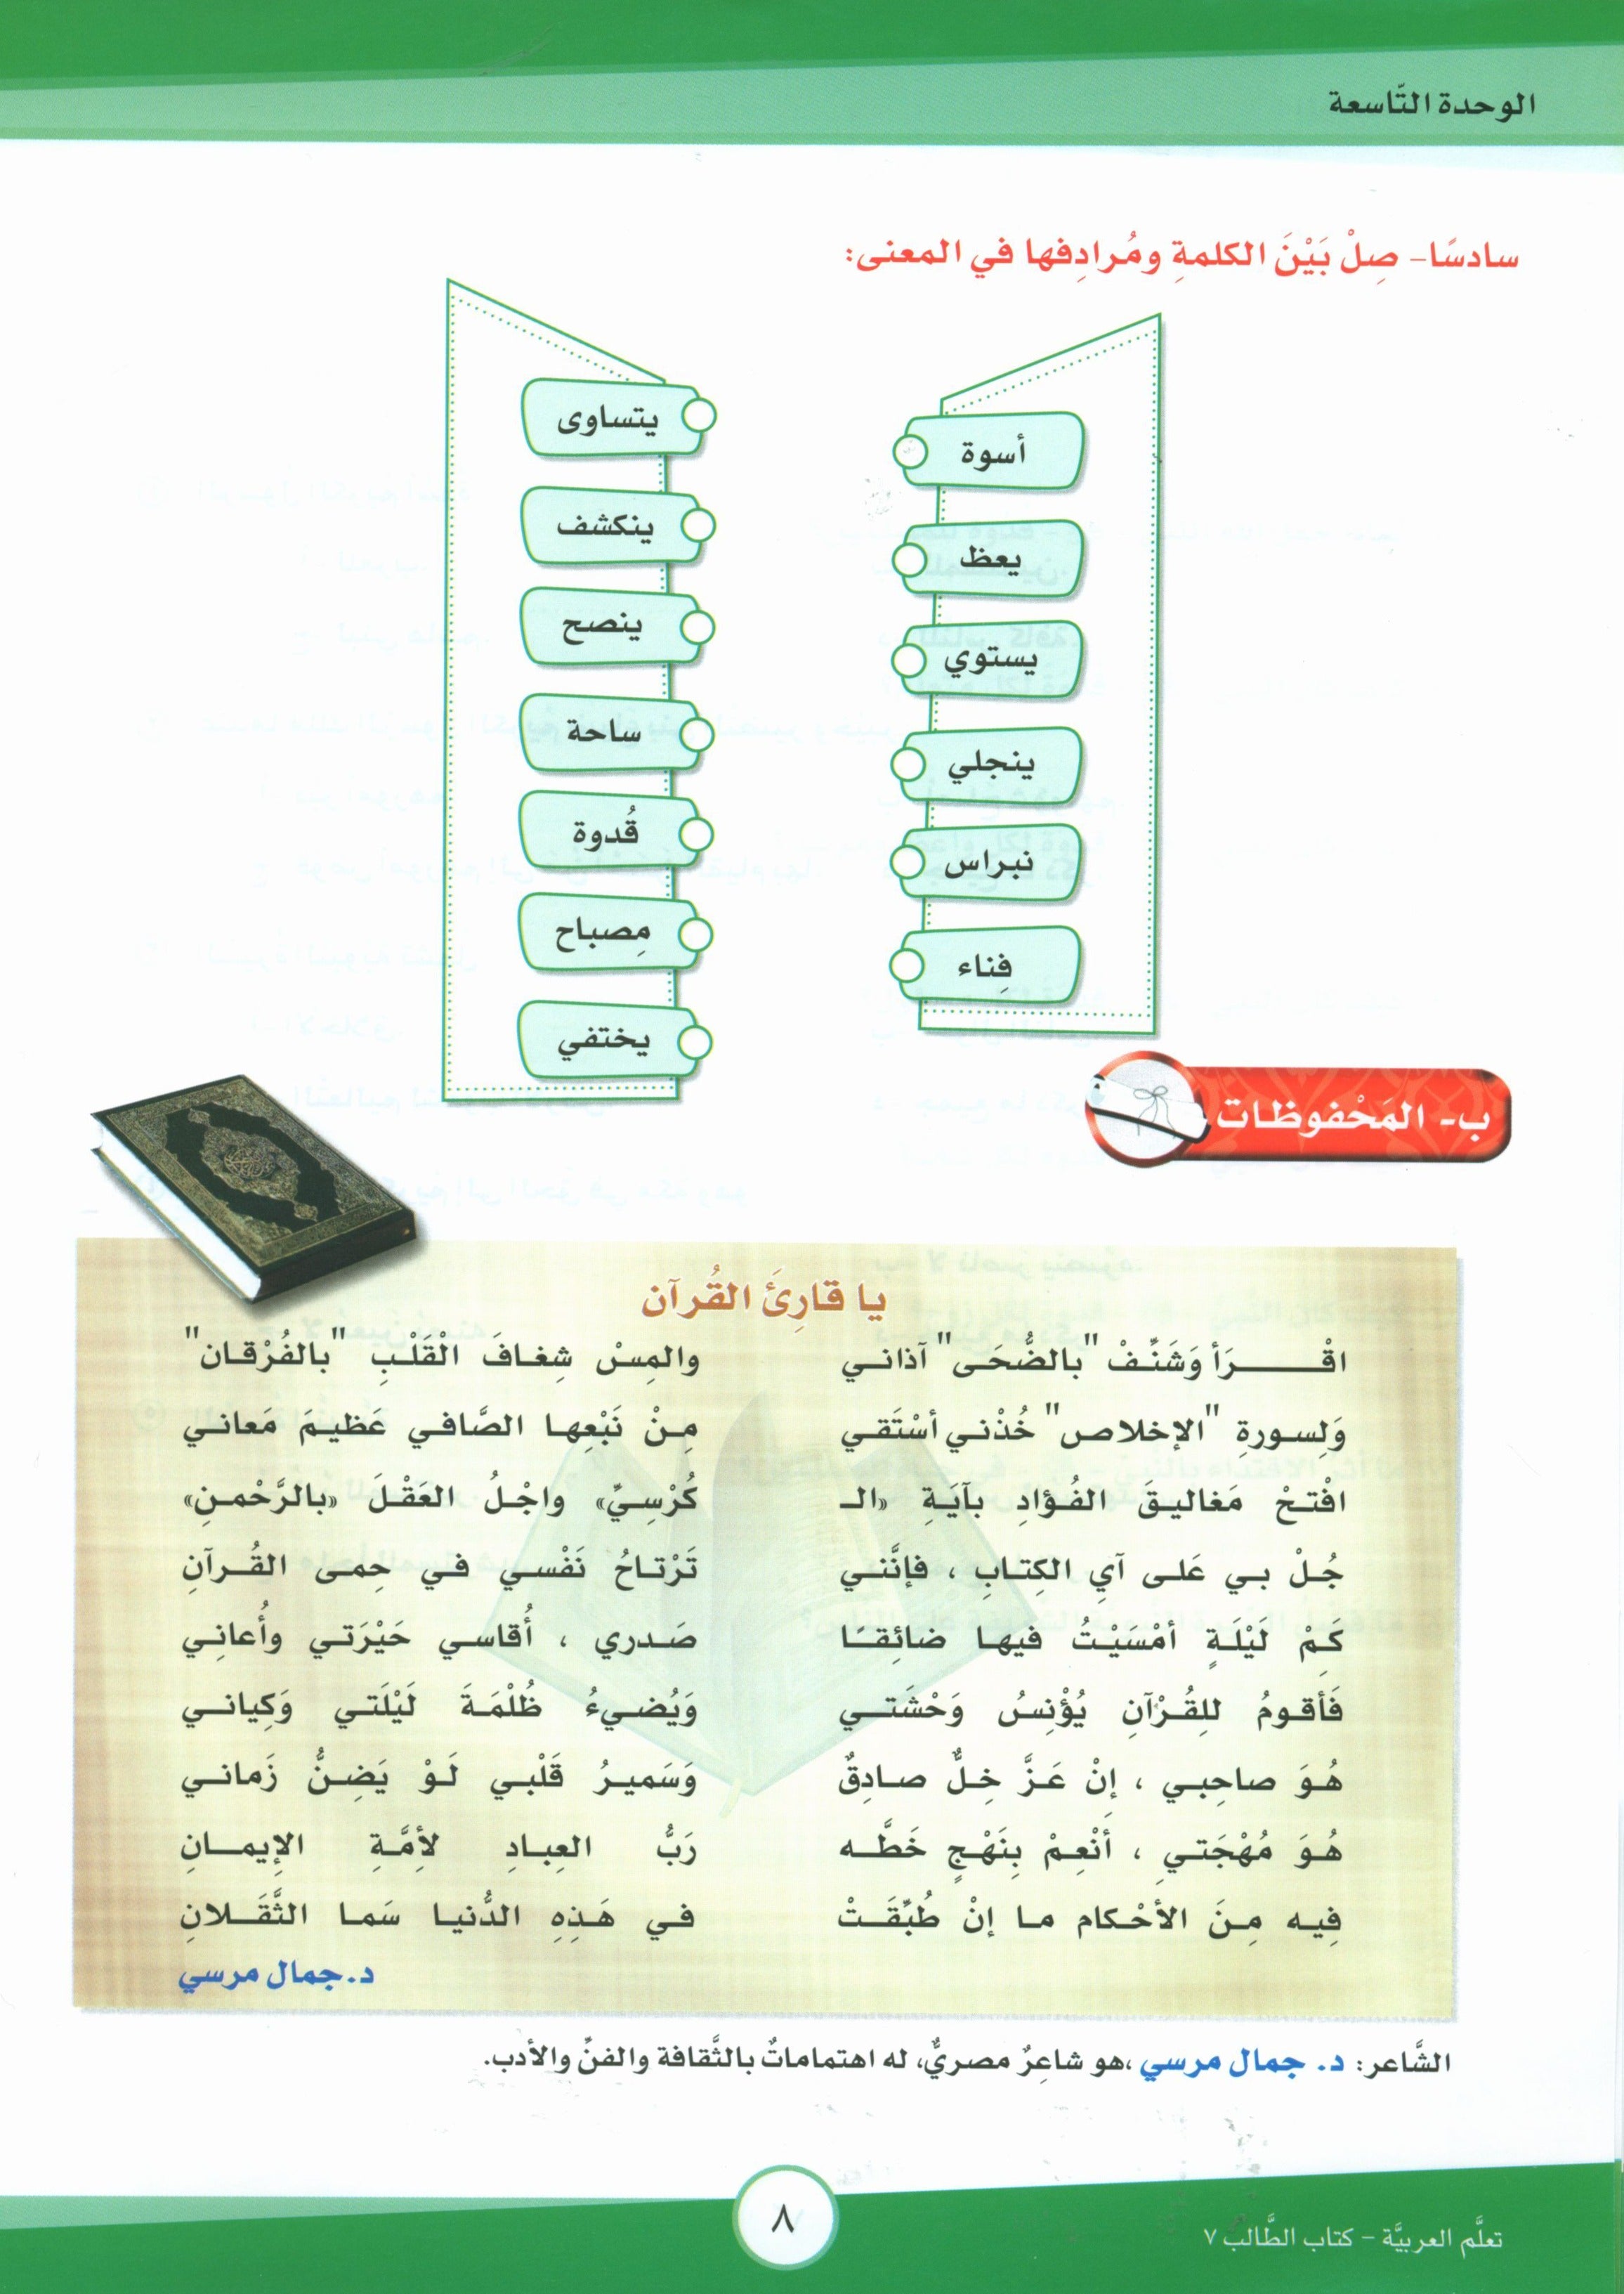 الوحدة التّاسعة
سادسًا- صِلْ بَيْنَ الكلمةِ ومُرادِفها في المعنى:
أسوة
يعظ
يستوي
ينجلي
نبراس
فِناء
يتساوى
ينكشف
ينصح
ساحة
قُدوة
مِصباح
يختفي
ب- المَحْفوظات
يا قارِئَ القُرآن
اقْــــرَأ وَشَنِّـفْ "بالضُّحَى" آذانـي والمِسْ شِغافَ الْقَلْـبِ "بالفُرْقـان"
وَلِسـورةِ "الإخلاص" خُذْنـي أسْتَقي مِـنْ نَبْعِهـا الصَّافـي عَظيـمَ مَعانـي
افْتـحْ مَغاليـقَ الفُـؤادِ بآيَـةِ «الـ كُرْسِـيِّ» واجْـلُ العَقْـلَ «بالرَّحْمـنِ»
جُـلْ بـي عَلـى آيِ الكِتـابِ ، فإنَّنـي تَرْتـاحُ نَفْسـي فـي حِمـى القُـرآنِ
كَـمْ لَيْلَـةٍ أمْسَيْـتُ فيهـا ضائِقـًا صَـدري ، أُقاسـي حَيْرَتـي وأُعانِـي
فَأقـومُ للِقُـرْآنِ يُؤْنِـسُ وَحْشَتـي وَيُضـيءُ ظُلْمَـةَ لَيْلَتـي وَكِيانـي
هُـوَ صاحِبـي ، إنْ عَـزَّ خِـلٌّ صـادِقٌ وَسَميـرُ قَلْبـي لَـوْ يَضِـنُّ زَمانـي
هُـوَ مُهْجَتـي ، أنْعِـمْ بِنَهْـجٍ خَطَّـه رَبُّ العِبـادِ لأمَّـةِ الإيمـانِ
فِيـه مِـنَ الأحْكـام مـا إنْ طُبِّقَـتْ فـي هَـذِهِ الدُّنيـا سَمـا الثَّقَـلانِ
د.جمال مرسي
الشَّاعر: د. جمال مرسي ،هو شاعِرٌ مصريٌّ، له اهتماماتٌ بالثَّقافة والفنِّ والأدب.
٨
تعلَّم العربيَّة - كتاب الطَّالب ٧